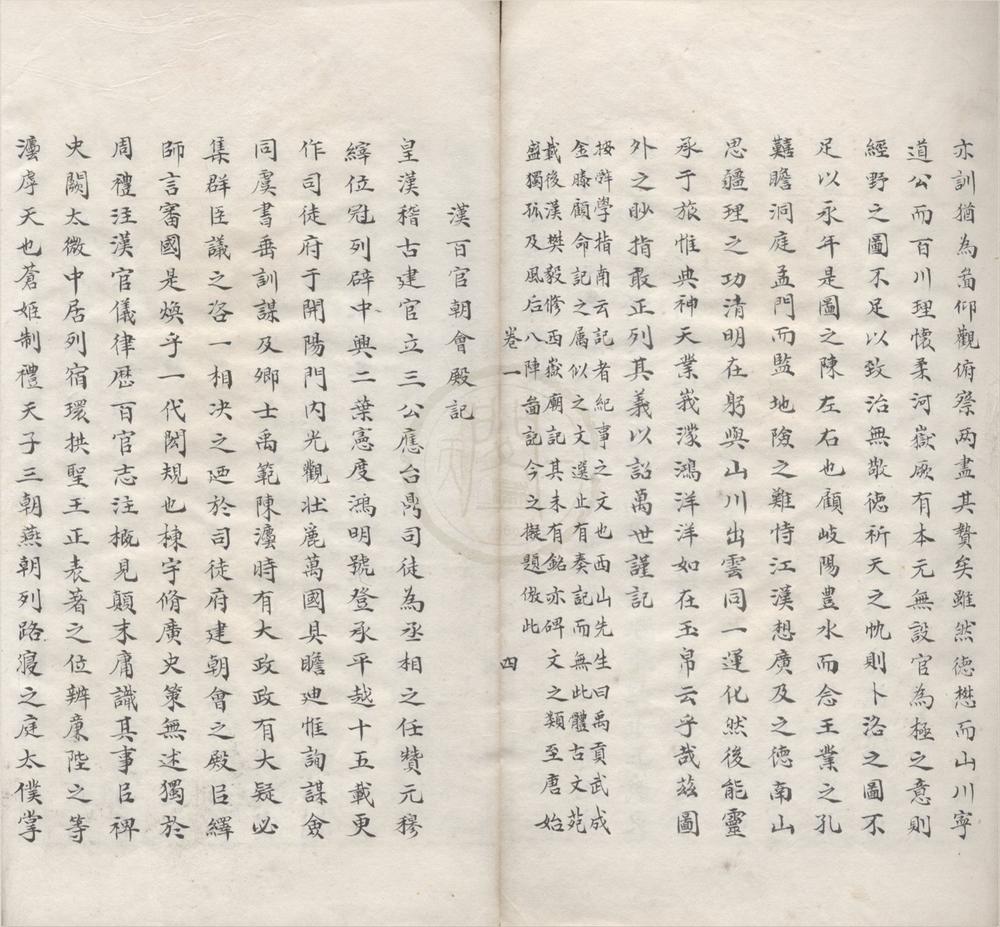 亦訓猶為啚仰觀俯察两盡其贊矣雖然徳懋而山川寧
道公而百川理懷柔河嶽厥有本元無設官為極之意則
經野之圖不足以致治無敬徳祈天之忱則卜洛之圖不
足以永年是圖之陳左右也顧岐陽豊水而念王業之孔
囏瞻洞庭孟門而監地險之難恃江漢想廣及之徳南山
思疆理之功清明在躬與山川出雲同一運化然後能靈
承于旅惟典神天業峩濛鴻洋洋如在玉帛云乎哉兹圖
外之眇指敢正列其義以詔萬世謹記
按辥學指南云記者紀事之文也西山先生曰禹貢武成
金縢顧命記之属似之文選止有奏記而無此體古文苑
載後漢樊毅修西嶽廟記其末有銘亦碑文之類至唐始
盛獨孤及風后八陣啚記今之擬題倣此
卷一 四
漢百官朝會殿記
皇漢稽古建官立三公應台鼎司徒為丞相之任贊元穆
縡位冠列辟中興二葉憲度鴻明號登承平越十五載更
作司徒府于開陽門内光觀壮麗萬國具瞻廸惟詢謀僉
同虞書垂訓謀及卿士禹範陳灋時有大政政有大疑必
集群臣議之咨一相决之廼於司徒府建朝會之殿臣繹
師言審國是煥乎一代閎規也棟宇脩廣史策無述獨於
周禮注漢官儀律歴百官志注概見顛末庸識其事臣稗
史闕太微中居列宿環拱聖王正表著之位辨亷陛之等
灋虖天也蒼姬制禮天子三朝燕朝列路寝之庭太僕掌